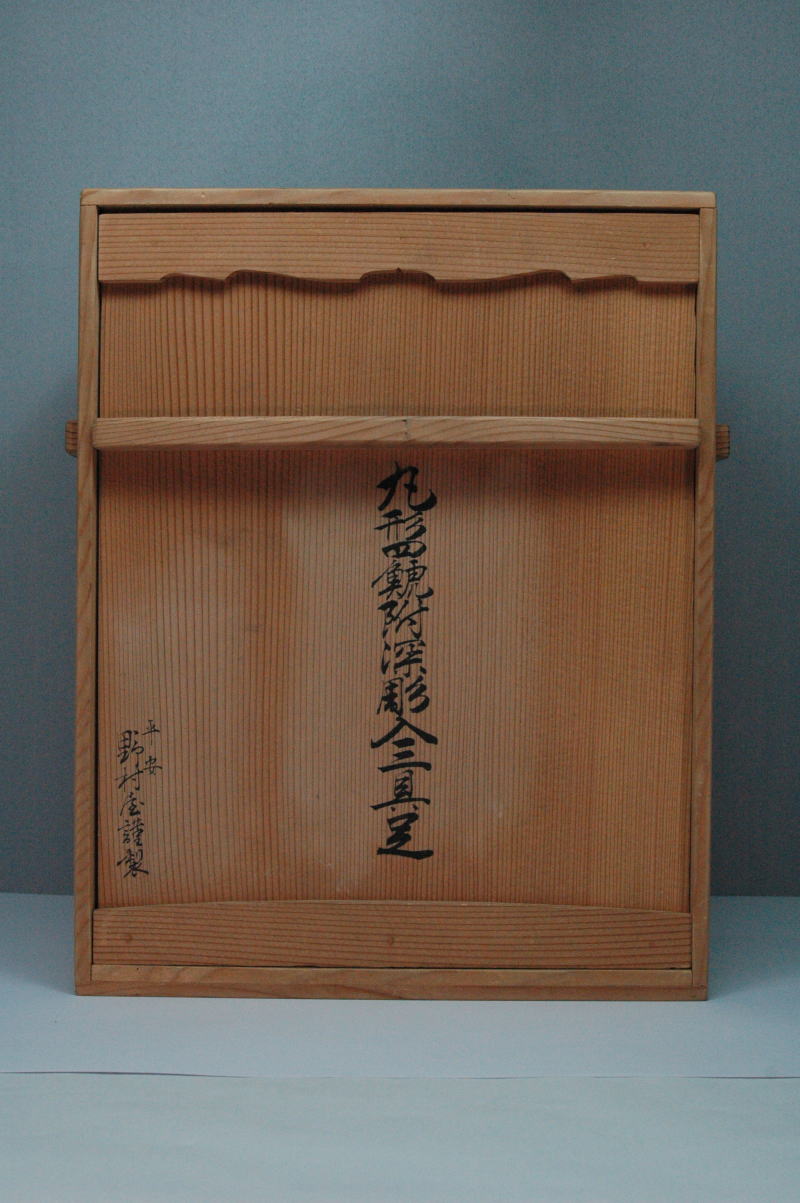 丸形四鯱附深彫入三具足
平安
野村屋謹製